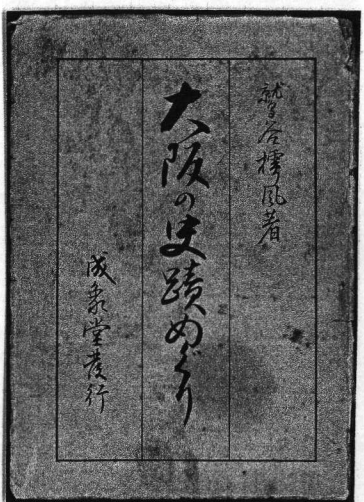 鷲谷樗風著
大阪の史蹟めぐり
成象堂發行